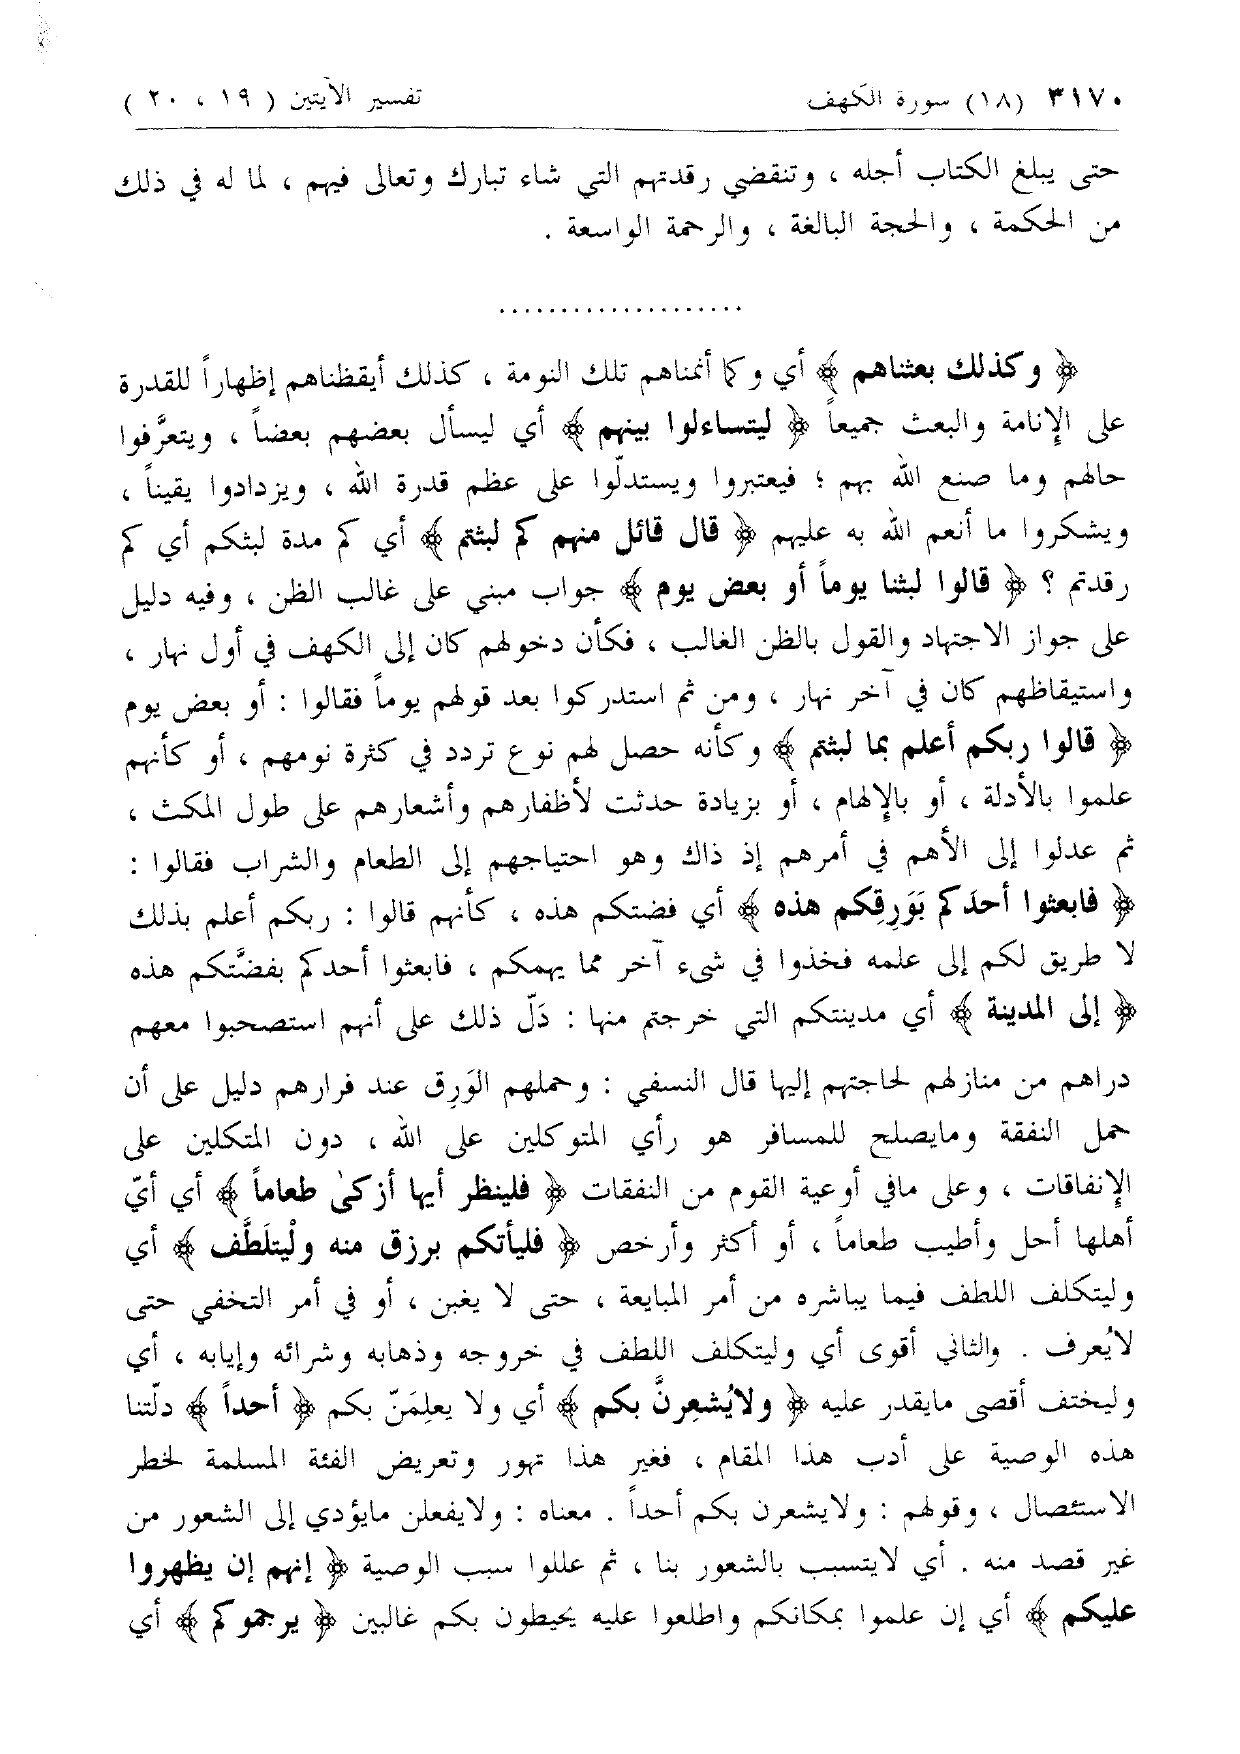 ٣١٧٠ (١٨) سورة الكهف تفسير الآيتين ( ١٩ ، ٢٠ )
حتى يبلغ الكتاب أجله ، وتنقضي رقدتهم التي شاء تبارك وتعالى فيهم ، لما له في ذلك
من الحكمة ، والحجة البالغة ، والرحمة الواسعة .
....................
﴿ وكذلك بعثناهم ﴾ أي وكما أنمناهم تلك النومة ، كذلك أيقظناهم إظهاراً للقدرة
على الإنامة والبعث جميعاً ﴿ ليتساءلوا بينهم ﴾ أي ليسأل بعضهم بعضاً ، ويتعرَّفوا
حالهم وما صنع الله بهم ؛ فيعتبروا ويستدلّوا على عظم قدرة الله ، ويزدادوا يقيناً ،
ويشكروا ما أنعم الله به عليهم ﴿ قال قائل منهم كم لبثتم ﴾ أي كم مدة لبثكم أي كم
رقدتم ؟ ﴿ قالوا لبثنا يوماً أو بعض يوم ﴾ جواب مبني على غالب الظن ، وفيه دليل
على جواز الاجتهاد والقول بالظن الغالب ، فكأن دخولهم كان إلى الكهف في أول نهار ،
واستيقاظهم كان في آخر نهار ، ومن ثم استدركوا بعد قولهم يوماً فقالوا : أو بعض يوم
﴿ قالوا ربكم أعلم بما لبثتم ﴾ وكأنه حصل لهم نوع تردد في كثرة نومهم ، أو كأنهم
علموا بالأدلة ، أو بالإلهام ، أو بزيادة حدثت لأظفارهم وأشعارهم على طول المكث ،
ثم عدلوا إلى الأهم في أمرهم إذ ذاك وهو احتياجهم إلى الطعام والشراب فقالوا :
﴿ فابعثوا أحدَكم بَوَرِقِكم هذه ﴾ أي فضتكم هذه ، كأنهم قالوا : ربكم أعلم بذلك
لا طريق لكم إلى علمه فخذوا في شيء آخر مما يهمكم ، فابعثوا أحدكم بفضَّتكم هذه
﴿ إلى المدينة ﴾ أي مدينتكم التي خرجتم منها : دَلّ ذلك على أنهم استصحبوا معهم
دراهم من منازلهم لحاجتهم إليها قال النسفي : وحملهم الوَرِق عند فرارهم دليل على أن
حمل النفقة ومايصلح للمسافر هو رأي المتوكلين على الله ، دون المتكلين على
الإنفاقات ، وعلى مافي أوعية القوم من النفقات ﴿ فلينظر أيها أزكىٰ طعاماً ﴾ أي أيّ
أهلها أحل وأطيب طعاماً ، أو أكثر وأرخص ﴿ فليأتكم برزق منه ولْيتلَطَّف ﴾ أي
وليتكلف اللطف فيما يباشره من أمر المبايعة ، حتى لا يغبن ، أو في أمر التخفي حتى
لايُعرف . والثاني أقوى أي وليتكلف اللطف في خروجه وذهابه وشرائه وإيابه ، أي
وليختف أقصى مايقدر عليه ﴿ ولايُشعِرنَّ بكم ﴾ أي ولا يعلِمَنّ بكم ﴿ أحداً ﴾ دلّتنا
هذه الوصية على أدب هذا المقام ، فغير هذا تهور وتعريض الفئة المسلمة لخطر
الاستئصال ، وقولهم : ولايشعرن بكم أحداً . معناه : ولايفعلن مايؤدي إلى الشعور من
غير قصد منه . أي لايتسبب بالشعور بنا ، ثم عللوا سبب الوصية ﴿ إنهم إن يظهروا
عليكم ﴾ أي إن علموا بمكانكم واطلعوا عليه يحيطون بكم غالبين ﴿ يرجموكم ﴾ أي